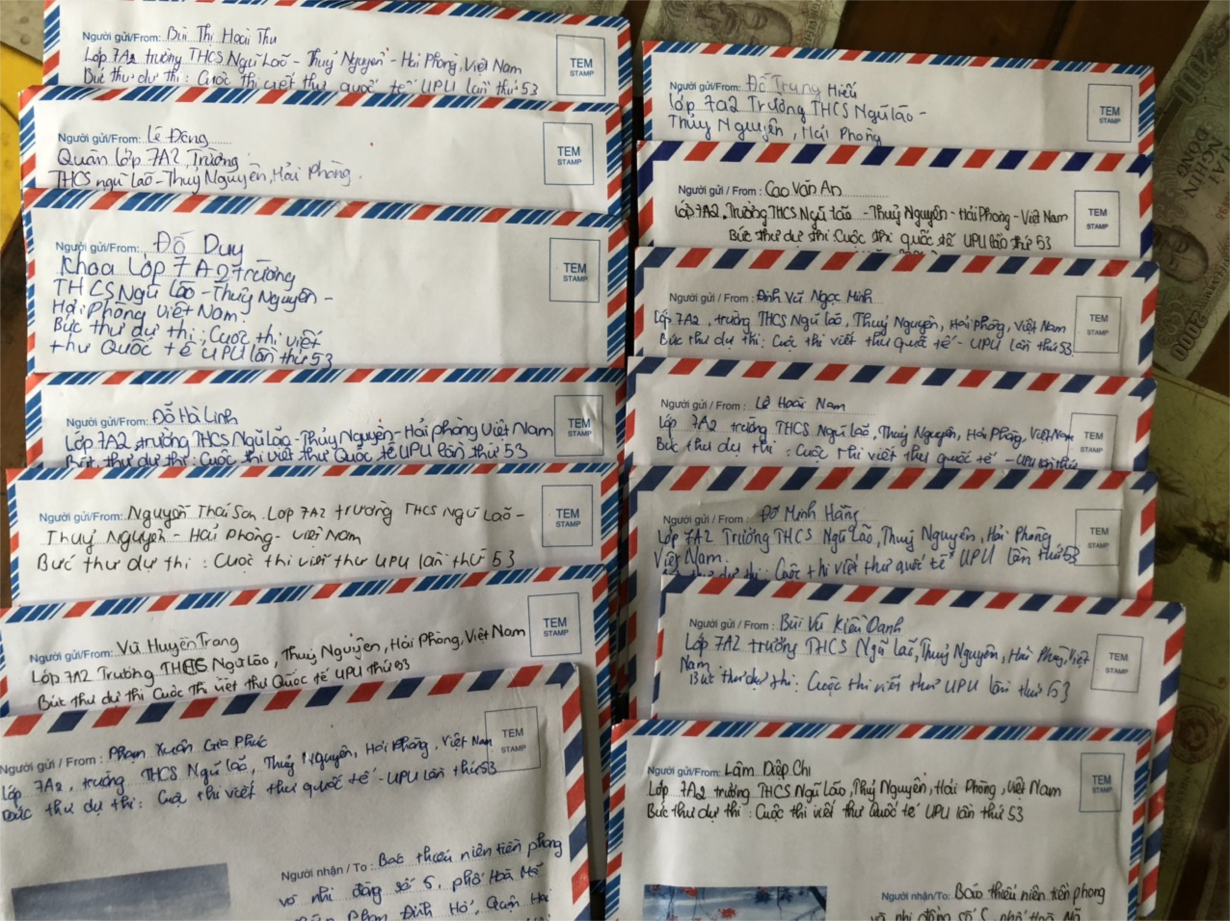 Người gửi/From: Bùi Thị Hoài Thu
Lớp 7A2 trường THCS Ngũ Lão - Thuỷ Nguyên - Hải Phòng, Việt Nam
Bức thư dự thi: Cuộc thi viết thư quốc tế UPU lần thứ 53
TEM
STAMP
Người gửi/From: Lê Đăng
Quân lớp 7A2, Trường
THCS ngũ Lão - Thuỷ Nguyên, Hải Phòng.
TEM
STAMP
Người gửi/From: Đỗ Duy
Khoa Lớp 7A2 trường
THCS Ngũ Lão - Thuỷ Nguyên -
Hải Phòng Việt Nam.
Bức thư dự thi: Cuộc thi viết
thư Quốc tế UPU lần thứ 53
TEM
STAMP
Người gửi/From: Đỗ Hà Linh
Lớp 7A2, trường THCS Ngũ Lão - Thủy Nguyên - Hải phòng Việt Nam
Bức thư dự thi: Cuộc thi viết thư Quốc tế UPU lần thứ 53
TEM
STAMP
Người gửi/From: Nguyễn Thái Sơn Lớp 7A2 trường THCS Ngũ Lão -
Thuỷ Nguyên - Hải Phòng - Việt Nam
Bức thư dự thi: Cuộc thi viết thư UPU lần thứ 53
TEM
STAMP
Người gửi/From: Vũ Huyền Trang
Lớp 7A2 Trường THCS Ngũ Lão, Thuỷ Nguyên, Hải Phòng, Việt Nam
Bức thư dự thi Cuộc Thi viết thư Quốc tế UPU thứ 53
TEM
STAMP
Người gửi / From: Phạm Xuân Gia Phúc
Lớp 7A2, trường THCS Ngũ Lão, Thuỷ Nguyên, Hải Phòng, Việt Nam
Bức thư dự thi: Cuộc thi viết thư quốc tế - UPU lần thứ 53
TEM
STAMP
Người nhận / To: Báo thiếu niên tiền phong
và nhi đồng số 5, phố Hoà Mã
Phạm Đình Hổ, Quận Hai
Người gửi/From: Đỗ Trung Hiếu
lớp 7a2 Trường THCS Ngũ Lão -
Thủy Nguyên, Hải Phòng
TEM
STAMP
Người gửi / From: Cao Văn An
Lớp 7A2, Trường THCS Ngũ Lão - Thuỷ Nguyên - Hải Phòng - Việt Nam
Bức thư dự thi Cuộc thi quốc tế UPU lần thứ 53
TEM
STAMP
Người gửi / From: Đinh Vũ Ngọc Minh
Lớp 7A2, trường THCS Ngũ Lão, Thuỷ Nguyên, Hải Phòng, Việt Nam
Bức thư dự thi: Cuộc thi viết thư Quốc tế - UPU lần thứ 53
TEM
STAMP
Người gửi / From: Lê Hoài Nam
Lớp 7A2 trường THCS Ngũ Lão, Thuỷ Nguyên, Hải Phòng, Việt Nam
Bức thư dự thi: Cuộc thi viết thư quốc tế - UPU lần thứ
TEM
STAMP
Người gửi / From: Đỗ Minh Hằng
Lớp 7A2 Trường THCS Ngũ Lão, Thuỷ Nguyên, Hải Phòng
Việt Nam.
thư dự thi: Cuộc thi viết thư quốc tế UPU lần thứ 53
TEM
STAMP
Người gửi / From: Bùi Vũ Kiều Oanh
Lớp 7A2 trường THCS Ngũ Lão, Thuỷ Nguyên, Hải Phòng, Việt
Nam
Bức thư dự thi: Cuộc thi viết thư UPU lần thứ 53
TEM
STAMP
Người gửi/From: Lâm Diệp Chi
Lớp 7A2 trường THCS Ngũ Lão, Thuỷ Nguyên, Hải Phòng, Việt Nam
Bức thư dự thi: Cuộc thi viết thư Quốc tế UPU lần thứ 53
TEM
STAMP
Người nhận/To: Báo thiếu niên tiền phong
và nhi đồng số 5 phố Hoà Mã
HAI NGHÌN ĐỒNG
2000